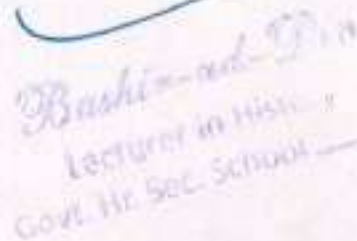 Bashir-ud-Din
Lecturer in Hist
Govt. Hr. Sec. School